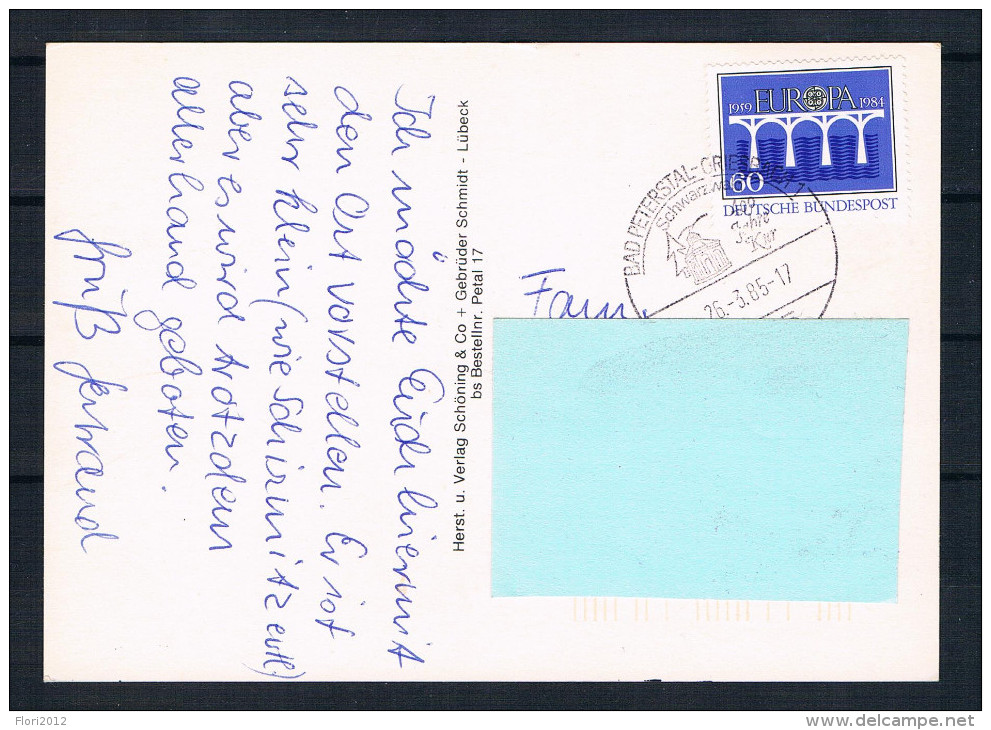 Ich möchte Euch hiermit
den Ort vorstellen. Er ist
sehr klein (wie Schirnitz evtl.)
aber es wird trotzdem
allerhand geboten.
Gruß
Herst. u. Verlag Schöning & Co + Gebrüder Schmidt - Lübeck
bs Bestellnr. Petal 17
1959 EUROPA 1984
60
DEUTSCHE BUNDESPOST
BAD PETERSTAL-GRIESBACH 1
Schwarzwald
Jahre
Kur
26.-3.85-17
Fam.
Flori2012
delcampe.net